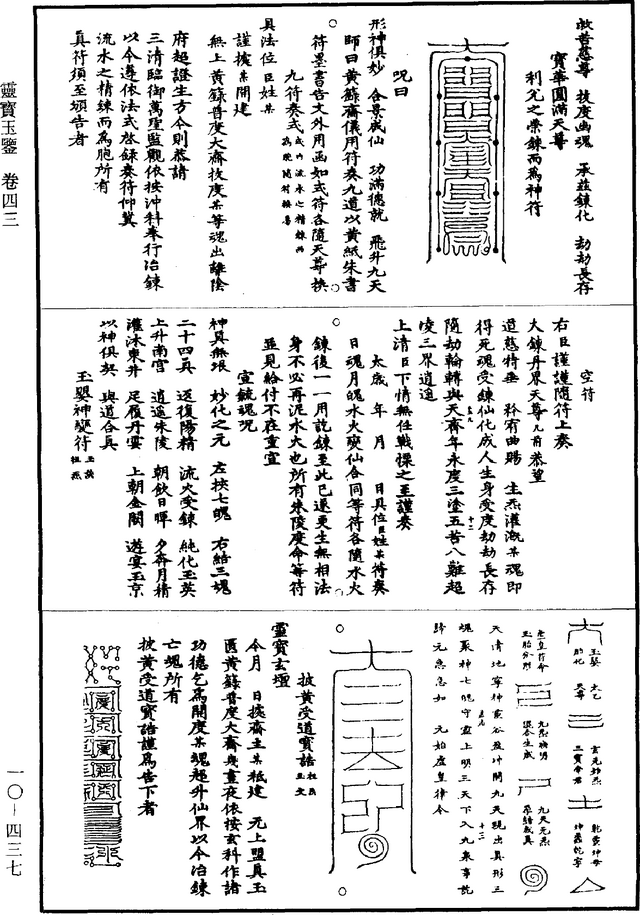 救苦慈尊　拔度幽魂　承茲鍊化　劫劫長存
寶華圓滿天尊
利允之榮鍊而爲神符
呪曰
形神俱妙　合景成仙　功滿德就　飛升九天
師曰黃籙齋儀用符奏九道以黃紙朱書
符墨書告文外用函如式符各隨天尊換
九符奏式
具法位臣姓某
謹據某開建
無上黃籙普度大齋拔度某等魂出離陰
府超證生方今則恭請
三清臨御萬聖監觀依按沖科奉行冶鍊
以今遵依法式啓錄奏符仰冀
流水之精鍊而爲胞所有
真符須至頒告者
空符
右臣謹謹隨符上奏
大鍊丹界天尊几前恭望
道慈特垂　矜宥曲賜　生炁灌溉某魂即
得死魂受鍊仙化成人生身受度劫劫長存
隨劫輪轉與天齊年永度三塗五苦八難超
凌三界逍遙
上清臣下情無任戰慄之至謹奏
太歲　年　月　日具位臣姓某符奏
日魂月魄水火變仙各同等符各隨水火
鍊後一一用訖鍊至此已遂更生無相法
身不必再泥水火也所有朱陵度命等符
並見給付不在重宣
宣統魂呪
神具無垠　妙化之元　左挾七魄　右結三魂
二十四真　返復陽精　流火受鍊　純化玉英
上升南宮　逍遙朱陵　朝飲日暉　夕奔月精
灌沐東井　足履丹雲　上朝金闕　遊宴玉京
以神俱契　與道合真
玉嬰神變符
玉嬰
胎化
太乙
天尊
天清地寧神靈谷盈冲開九天現出真形三
魂聚神七魄守靈上明三天下入九泉事訖
歸元急急如　元始虛皇律令
披黃受道寶誥
靈寶玄壇
今月　日據齋主某祗建　无上盟真玉
匱黃籙普度大齋幾晝夜依按玄科作諸
功德乞爲開度某魂超升仙界以今冶鍊
亡魂所有
披黃受道寶誥謹爲告下者
靈寶玉鑒　卷四三
一〇—四三七